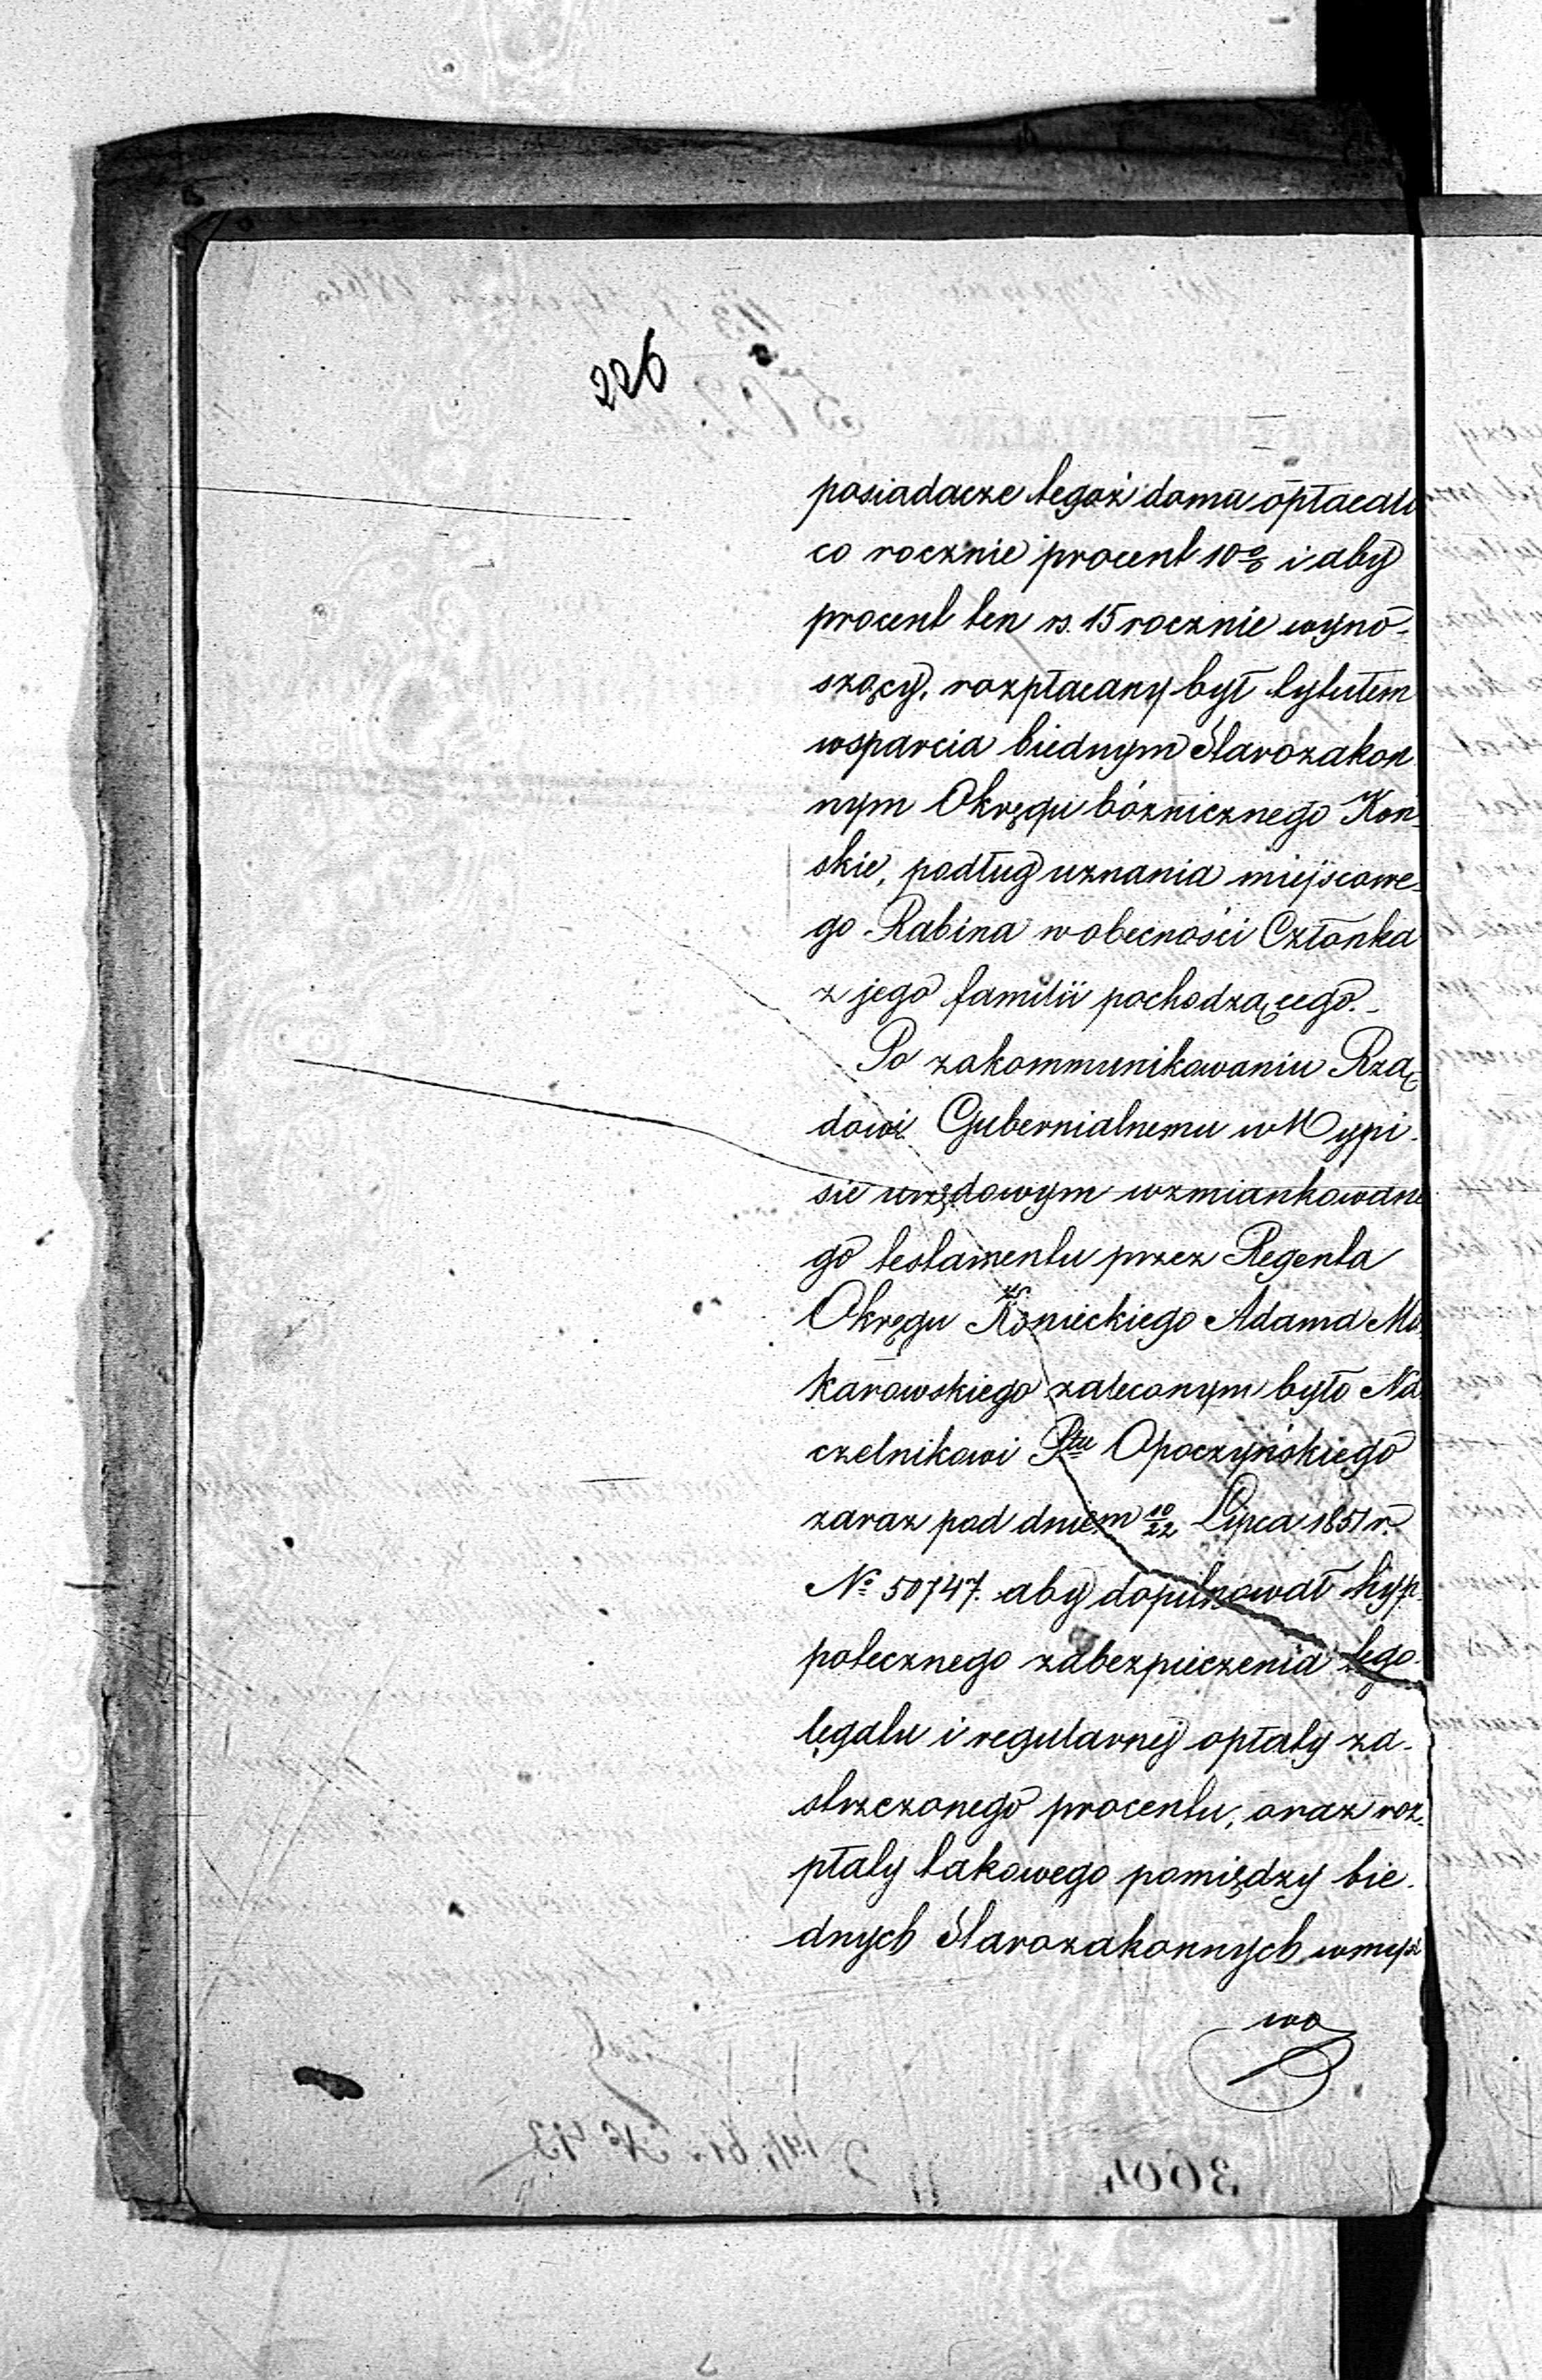 226
posiadacze tegoż domu opłacali
co rocznie procent 10% i aby
procent ten rs. 15 rocznie wyno-
szący, rozpłacany był tytułem
wsparcia biednym Starozakon
nym Okręgu bóżnicznego Koń
skie, podług uznania miejscowe-
go Rabina w obecności Członka
z jego familii pochodzącego.-
Po zakommunikowaniu Rzą
dowi Gubernialnemu w Wypi-
sie urzędowym wzmiankowane
go testamentu przez Regenta
Okręgu Konieckiego Adama Mo
karowskiego zaleconym było Na
czelnikowi Ptu Opoczyńskiego
zaraz pod dniem 10/22 Lipca 1851 r.
№ 50747. aby dopilnował hyp-
potecznego zabezpieczenia tego
legatu i regularnej opłaty za-
strzeżonego procentu, oraz roz-
płaty takowego pomiędzy bie-
dnych Starozakonnych, wmyśl
wo